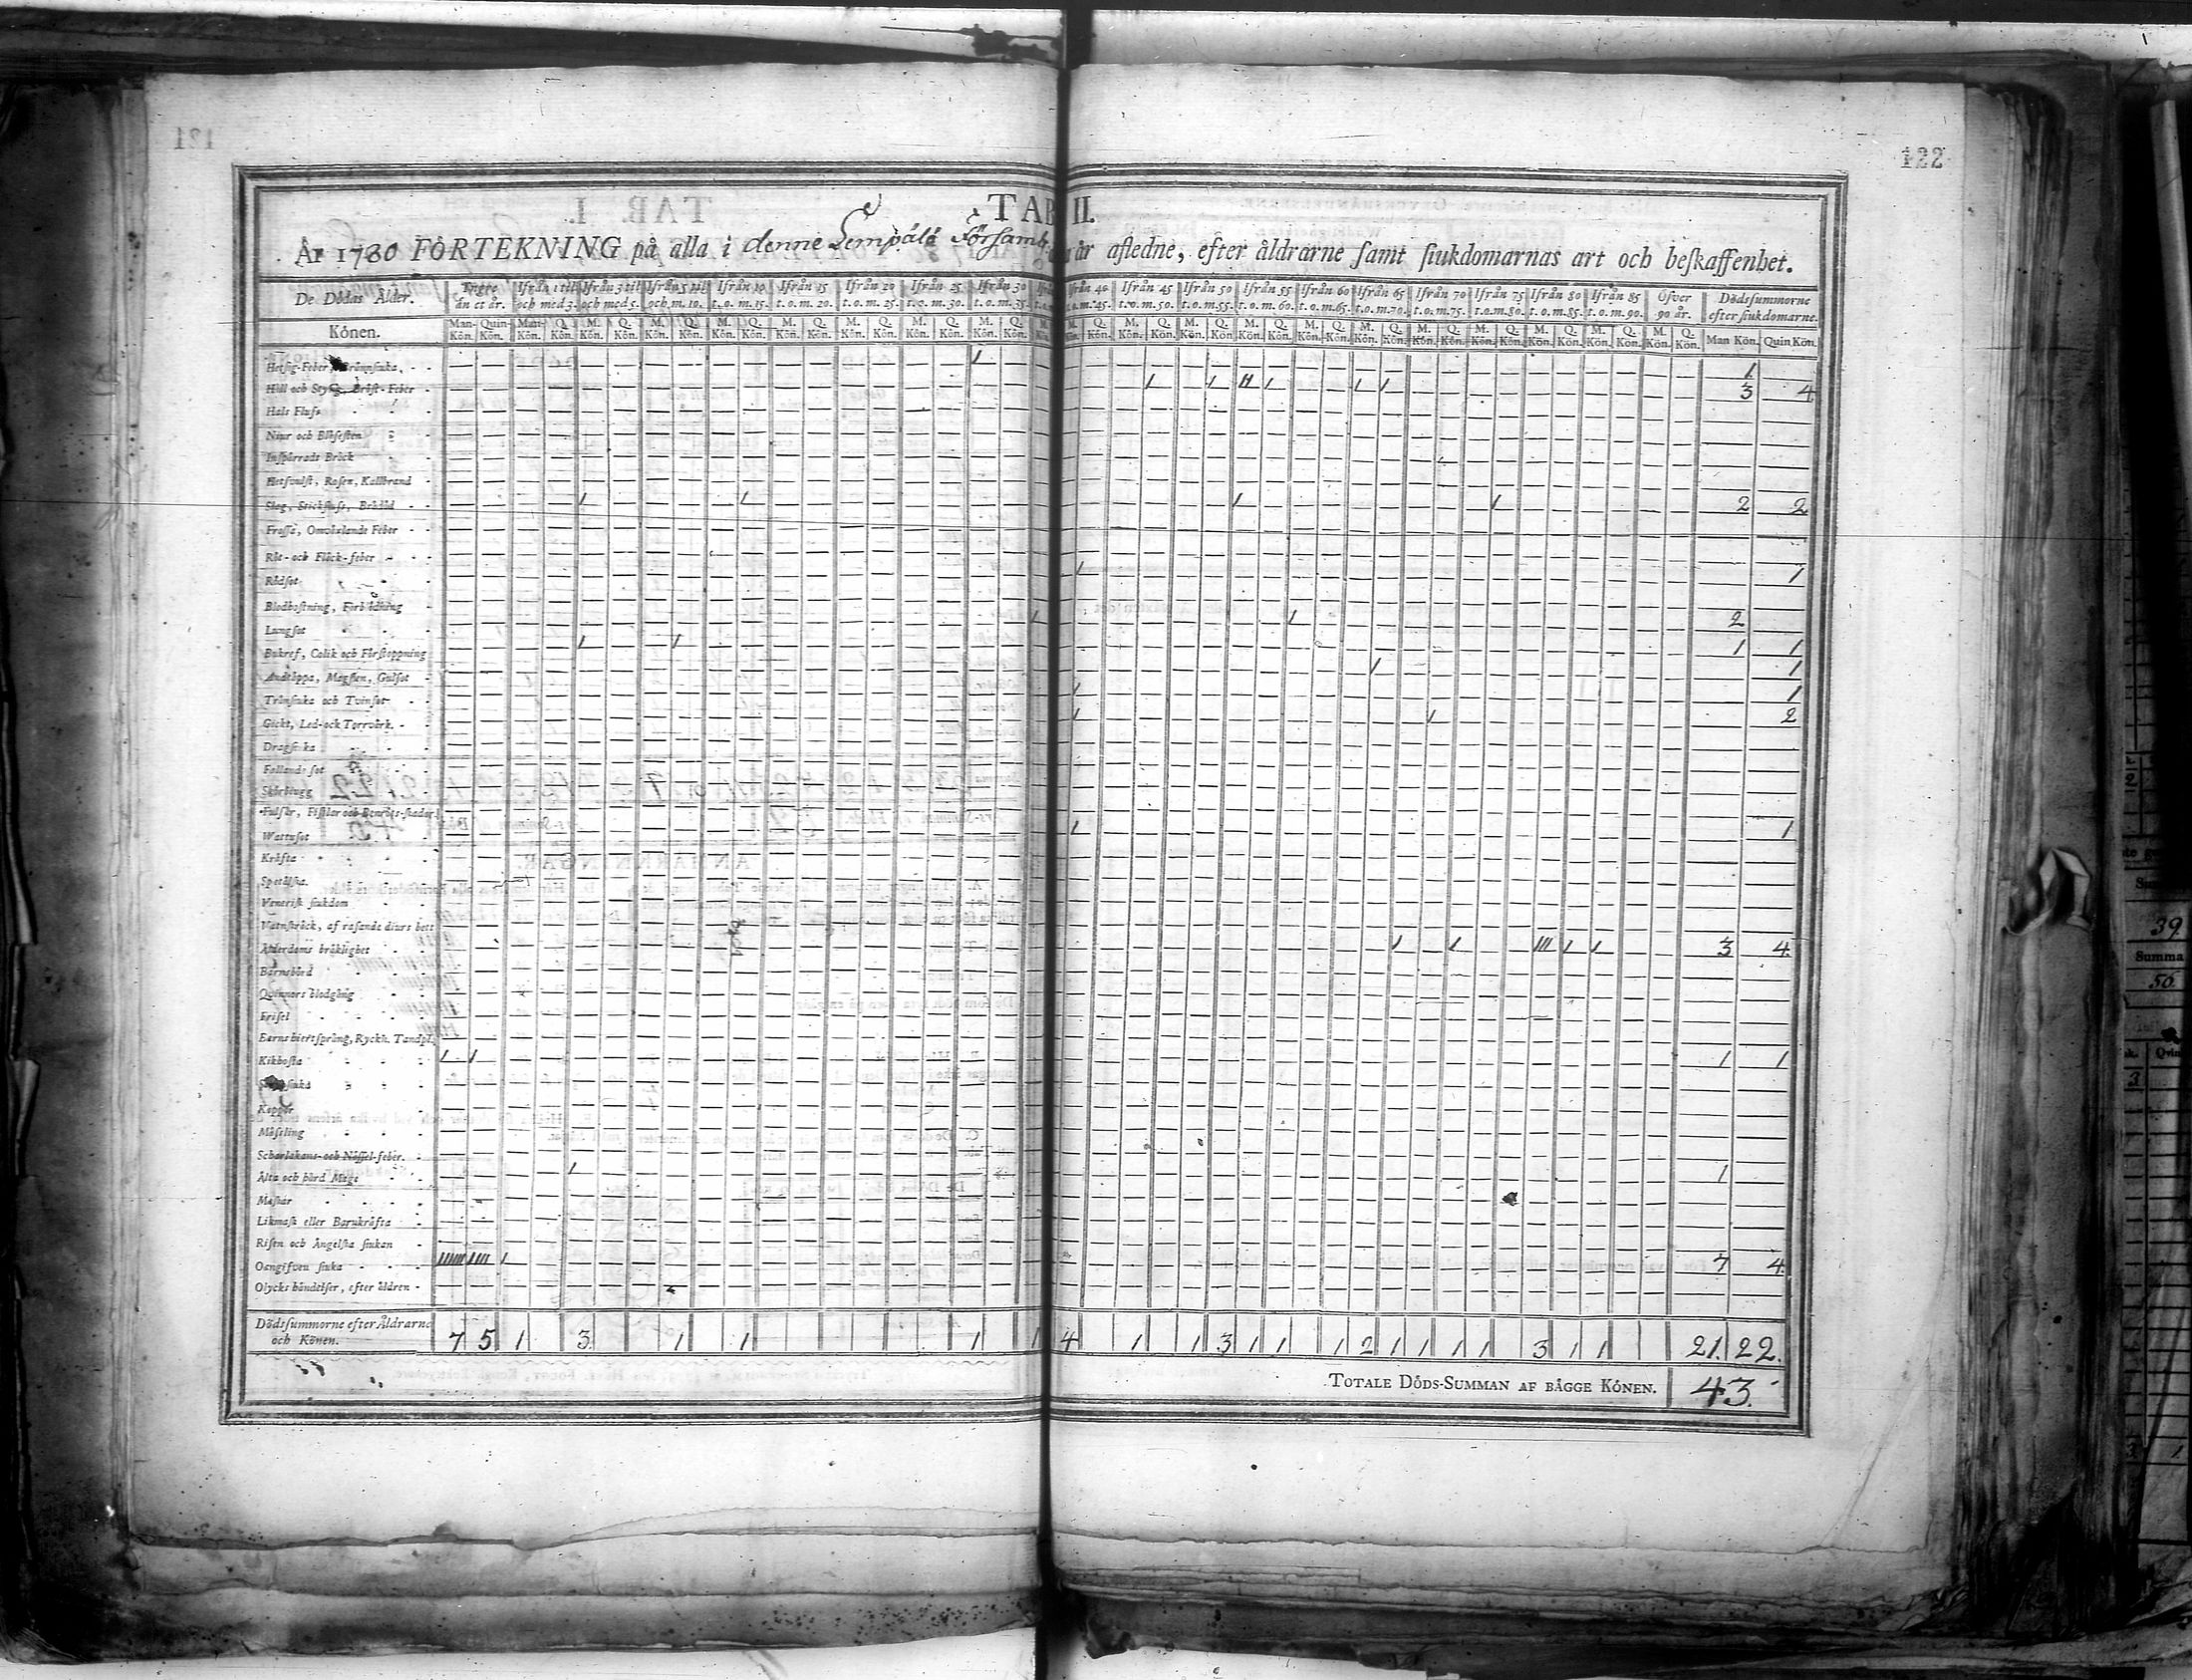 121
122
TAB II.
År 1780 FÖRTEKNING på alla i denne Lempälä Församb. år afledne, efter åldrarne samt siukdomarnas art och beskaffenhet.
De Dödas Ålder. Yngre än et år. Ifrån 1 til och med 3. Ifrån 3 til och med 5. Ifrån 5 til och m. 10. Ifrån 10 t. o. m. 15. Ifrån 15 t. o. m. 20. Ifrån 20 t. o. m. 25. Ifrån 25 t. o. m. 30. Ifrån 30 t. o. m. 35. Ifrån 40 t. o. m. 45. Ifrån 45 t. o. m. 50. Ifrån 50 t. o. m. 55. Ifrån 55 t. o. m. 60. Ifrån 60 t. o. m. 65. Ifrån 65 t. o. m. 70. Ifrån 70 t. o. m. 75. Ifrån 75 t. o. m. 80. Ifrån 80 t. o. m. 85. Ifrån 85 t. o. m. 90. Öfver 90 år. Dödssummorne efter siukdomarne.
Könen. Man-Kön. Quin-Kön. Man-Kön. Q. Kön. M. Kön. Q. Kön. M. Kön. Q. Kön. M. Kön. Q. Kön. M. Kön. Q. Kön. M. Kön. Q. Kön. M. Kön. Q. Kön. M. Kön. Q. Kön. Man Kön. Quin Kön.
Hetsig-Feber, Brännsiuka, 1 1
Håll och Styng, Bröst-Feber 1 1 11 1 1 1 3 4
Hals Fluss
Niur och Blåsesten
Inspärrade Bråck
Hetsvulst, Rosen, Kallbrand
Slag, Stickfluss, Brådöd 1 1 1 1 2 2
Frossa, Omväxlande Feber
Röt- och Fläck-feber
Rödsot 1 1
Blodhostning, Förblödning
Lungsot 1 1 2
Bukref, Colik och Förstoppning 1 1 1 1
Andtäppa, Magsten, Gulsot 1 1
Trånsiuka och Tvinsot 1 1
Gickt, Led- och Torrvärk. 1 1 2
Dragsiuka
Fallandesot
Skörbiugg
Fulsår, Fistlar och Benröts-skador
Wattusot 1 1
Kräfta
Spetälska.
Venerisk siukdom
Vatuskräck, af rasande diurs bett
Ålderdoms bräklighet 1 1 111 1 1 3 4
Barnsbörd
Quinnors blodgång
Frisel
Barns hiertsprång, Ryckn. Tandpl.
Kikhosta 1 1 1 1
Koppor
Mässling
Scharlakans- och Nässel-feber.
Älta och hård Mage 1 1
Maskar
Likmask eller Barnkräfta
Risen och Ängelska siukan
Oangifven siuka 1111111 1111 1 7 4
Olycks händelser, efter åldren
Dödssummorne efter Åldrarne och Könen. 7 5 1 3 1 1 1 1 4 1 1 3 1 1 1 2 1 1 1 1 3 1 1 21. 22.
TOTALE DÖDS-SUMMAN AF BÅGGE KÖNEN. 43.
39
Summa
56
3